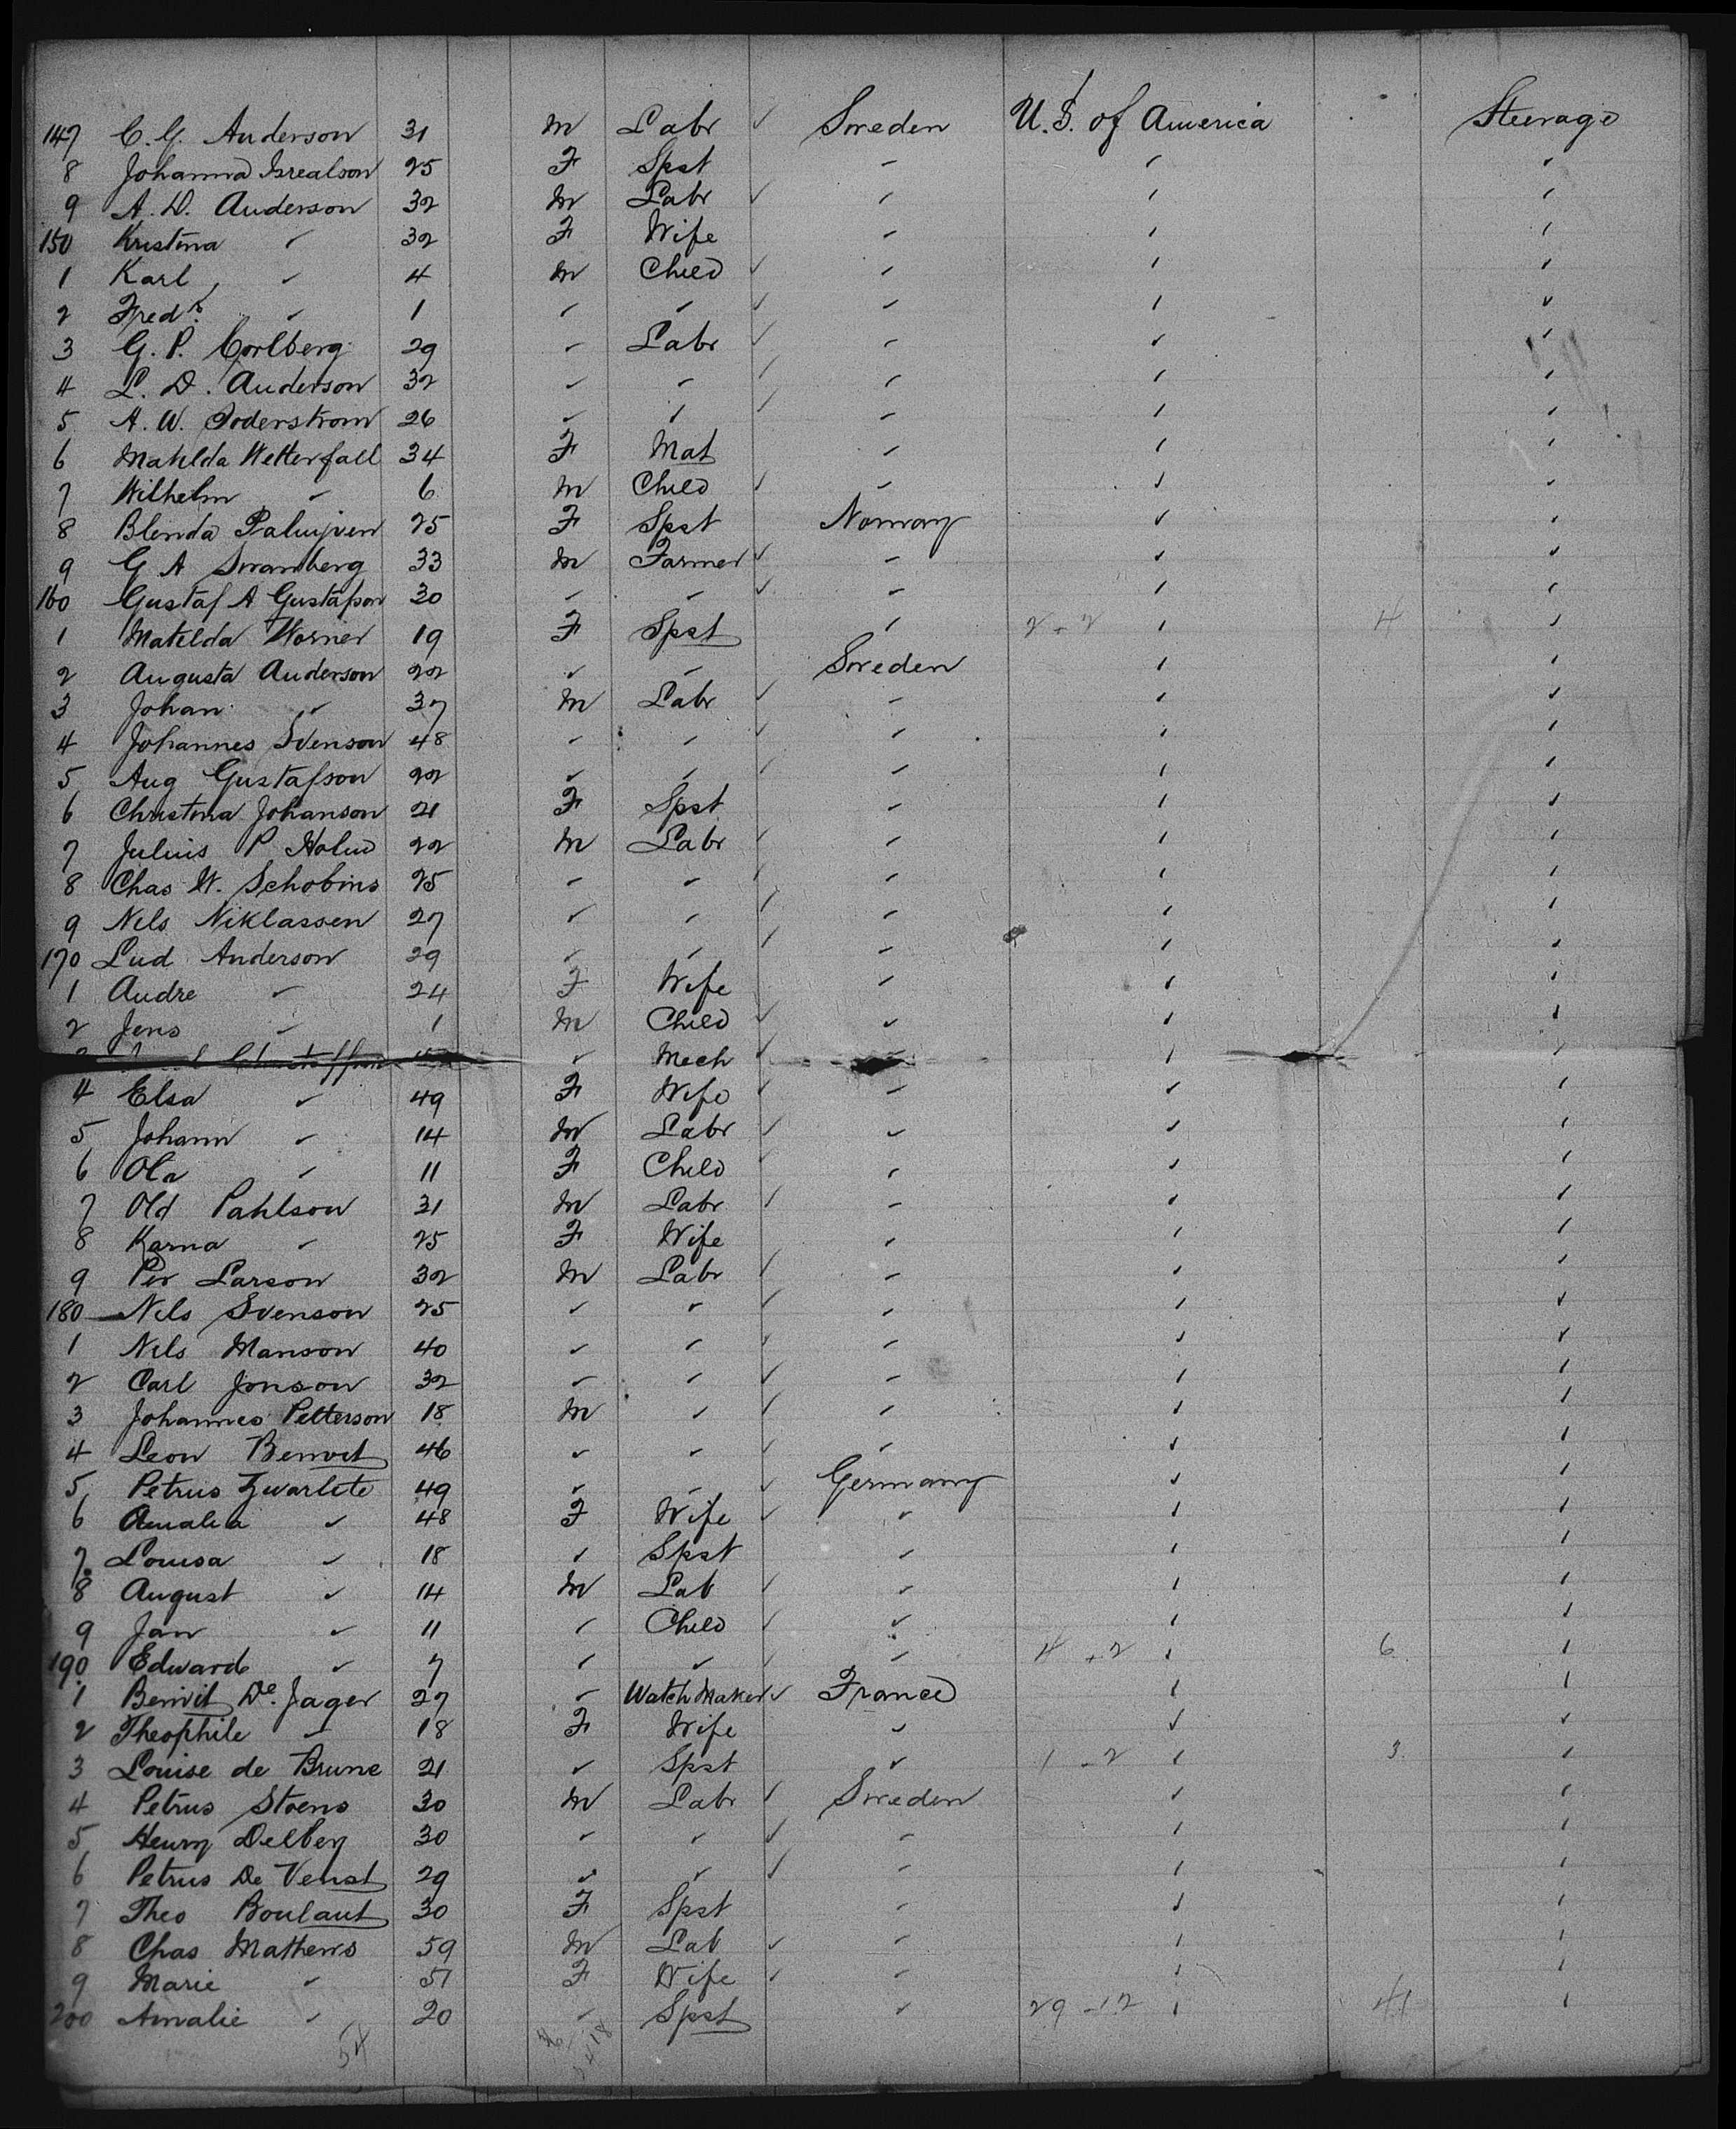 147 C. G. Anderson 31 M Labr ✓ Sweden U. S. of America Steerage
8 Johanna Isrealson 25 F Spst " " "
9 A. D. Anderson 32 M Labr ✓ " " "
150 Kristina " 32 F Wife " " "
1 Karl " 4 M Child ✓ " " "
2 Fredk " 1 " " ✓ " " "
3 G. P. Corlberg 29 " Labr ✓ " " "
4 L. D. Anderson 32 " " ✓ " " "
5 A. W. Soderstrom 26 " " ✓ " " "
6 Matilda Wetterfall 34 F Mat " " "
7 Wilhelm " 6 M Child ✓ " " "
8 Blenda 25 F Spst Norway " "
9 G A Swanberg 33 M Farmer ✓ " " "
160 Gustaf A Gustafson 30 " " ✓ " " "
1 Matilda Worner 19 F Spst " 2-2 " 4 "
2 Augusta Anderson 22 " " Sweden " "
3 Johan " 37 M Labr ✓ " " "
4 Johannes Svenson 48 " " ✓ " " "
5 Aug Gustafson 22 " " ✓ " " "
6 Christina Johanson 21 F Spst " " "
7 Julius P Holm 22 M Labr ✓ " " "
8 Chas W. Schobins 25 " " ✓ " " "
9 Nels Niklassen 27 " " ✓ " " "
170 Lud Anderson 29 " " ✓ " " "
1 Andre " 24 F Wife " " "
2 Jens " 1 M Child ✓ " " "
" Mech ✓ " " "
4 Elsa " 49 F Wife ✓ " " "
5 Johann " 14 M Labr ✓ " " "
6 Ola " 11 F Child ✓ " " "
7 Old Pahlson 31 M Labr ✓ " " "
8 Karna " 25 F Wife " " "
9 Per Larson 32 M Labr ✓ " " "
180 Nils Svenson 25 " " ✓ " " "
1 Nils Manson 40 " " ✓ " " "
2 Carl Jonson 32 " " ✓ " " "
3 Johannes Petterson 18 M " ✓ " " "
4 Leon Benvit 46 " " ✓ " " "
5 Petrus Zwarlete 49 " " ✓ Germany " "
6 Amalia " 48 F Wife ✓ " " "
7 Louisa " 18 " Spst " " "
8 August " 14 M Lab ✓ " " "
9 Jan " 11 " Child ✓ " " "
190 Edward " 7 " " ✓ " 4-2 " 6 "
1 Benvit De Jager 27 " Watch Maker ✓ France " "
2 Theophile " 18 F Wife " " "
3 Louise de Brune 21 " Spst " 1-2 " 3 "
4 Petrus Stoens 30 M Labr ✓ Sweden " "
5 Henry Delbey 30 " " ✓ " " "
6 Petrus De Venst 29 " " ✓ " " "
7 Theo Boulaut 30 F Spst " " "
8 Chas Mathews 59 M Lab ✓ " " "
9 Marie " 51 F Wife ✓ " " "
200 Amalie " 20 " Spst " 29-12 " 41 "
54